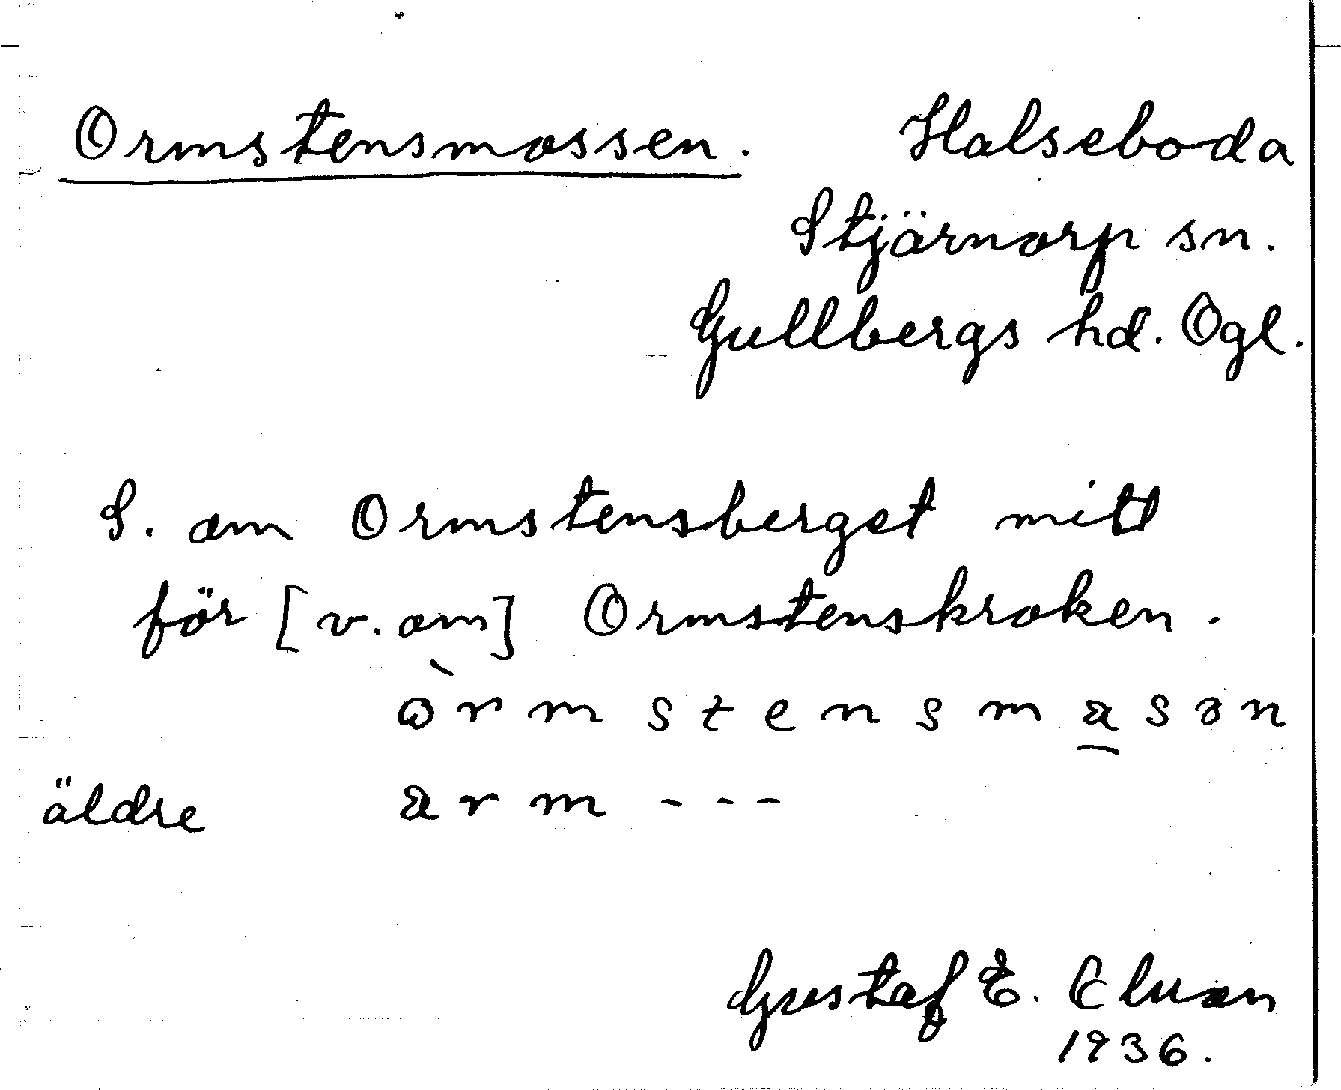 Ormstensmossen. Halseboda
Stjärnorp sn.
Gullbergs hd. Ögl.
S. om Ormstensberget mitt
för [v. om] Ormstenskroken.
òrmstensmasən
äldre arm ---
Gustaf E.
1936.